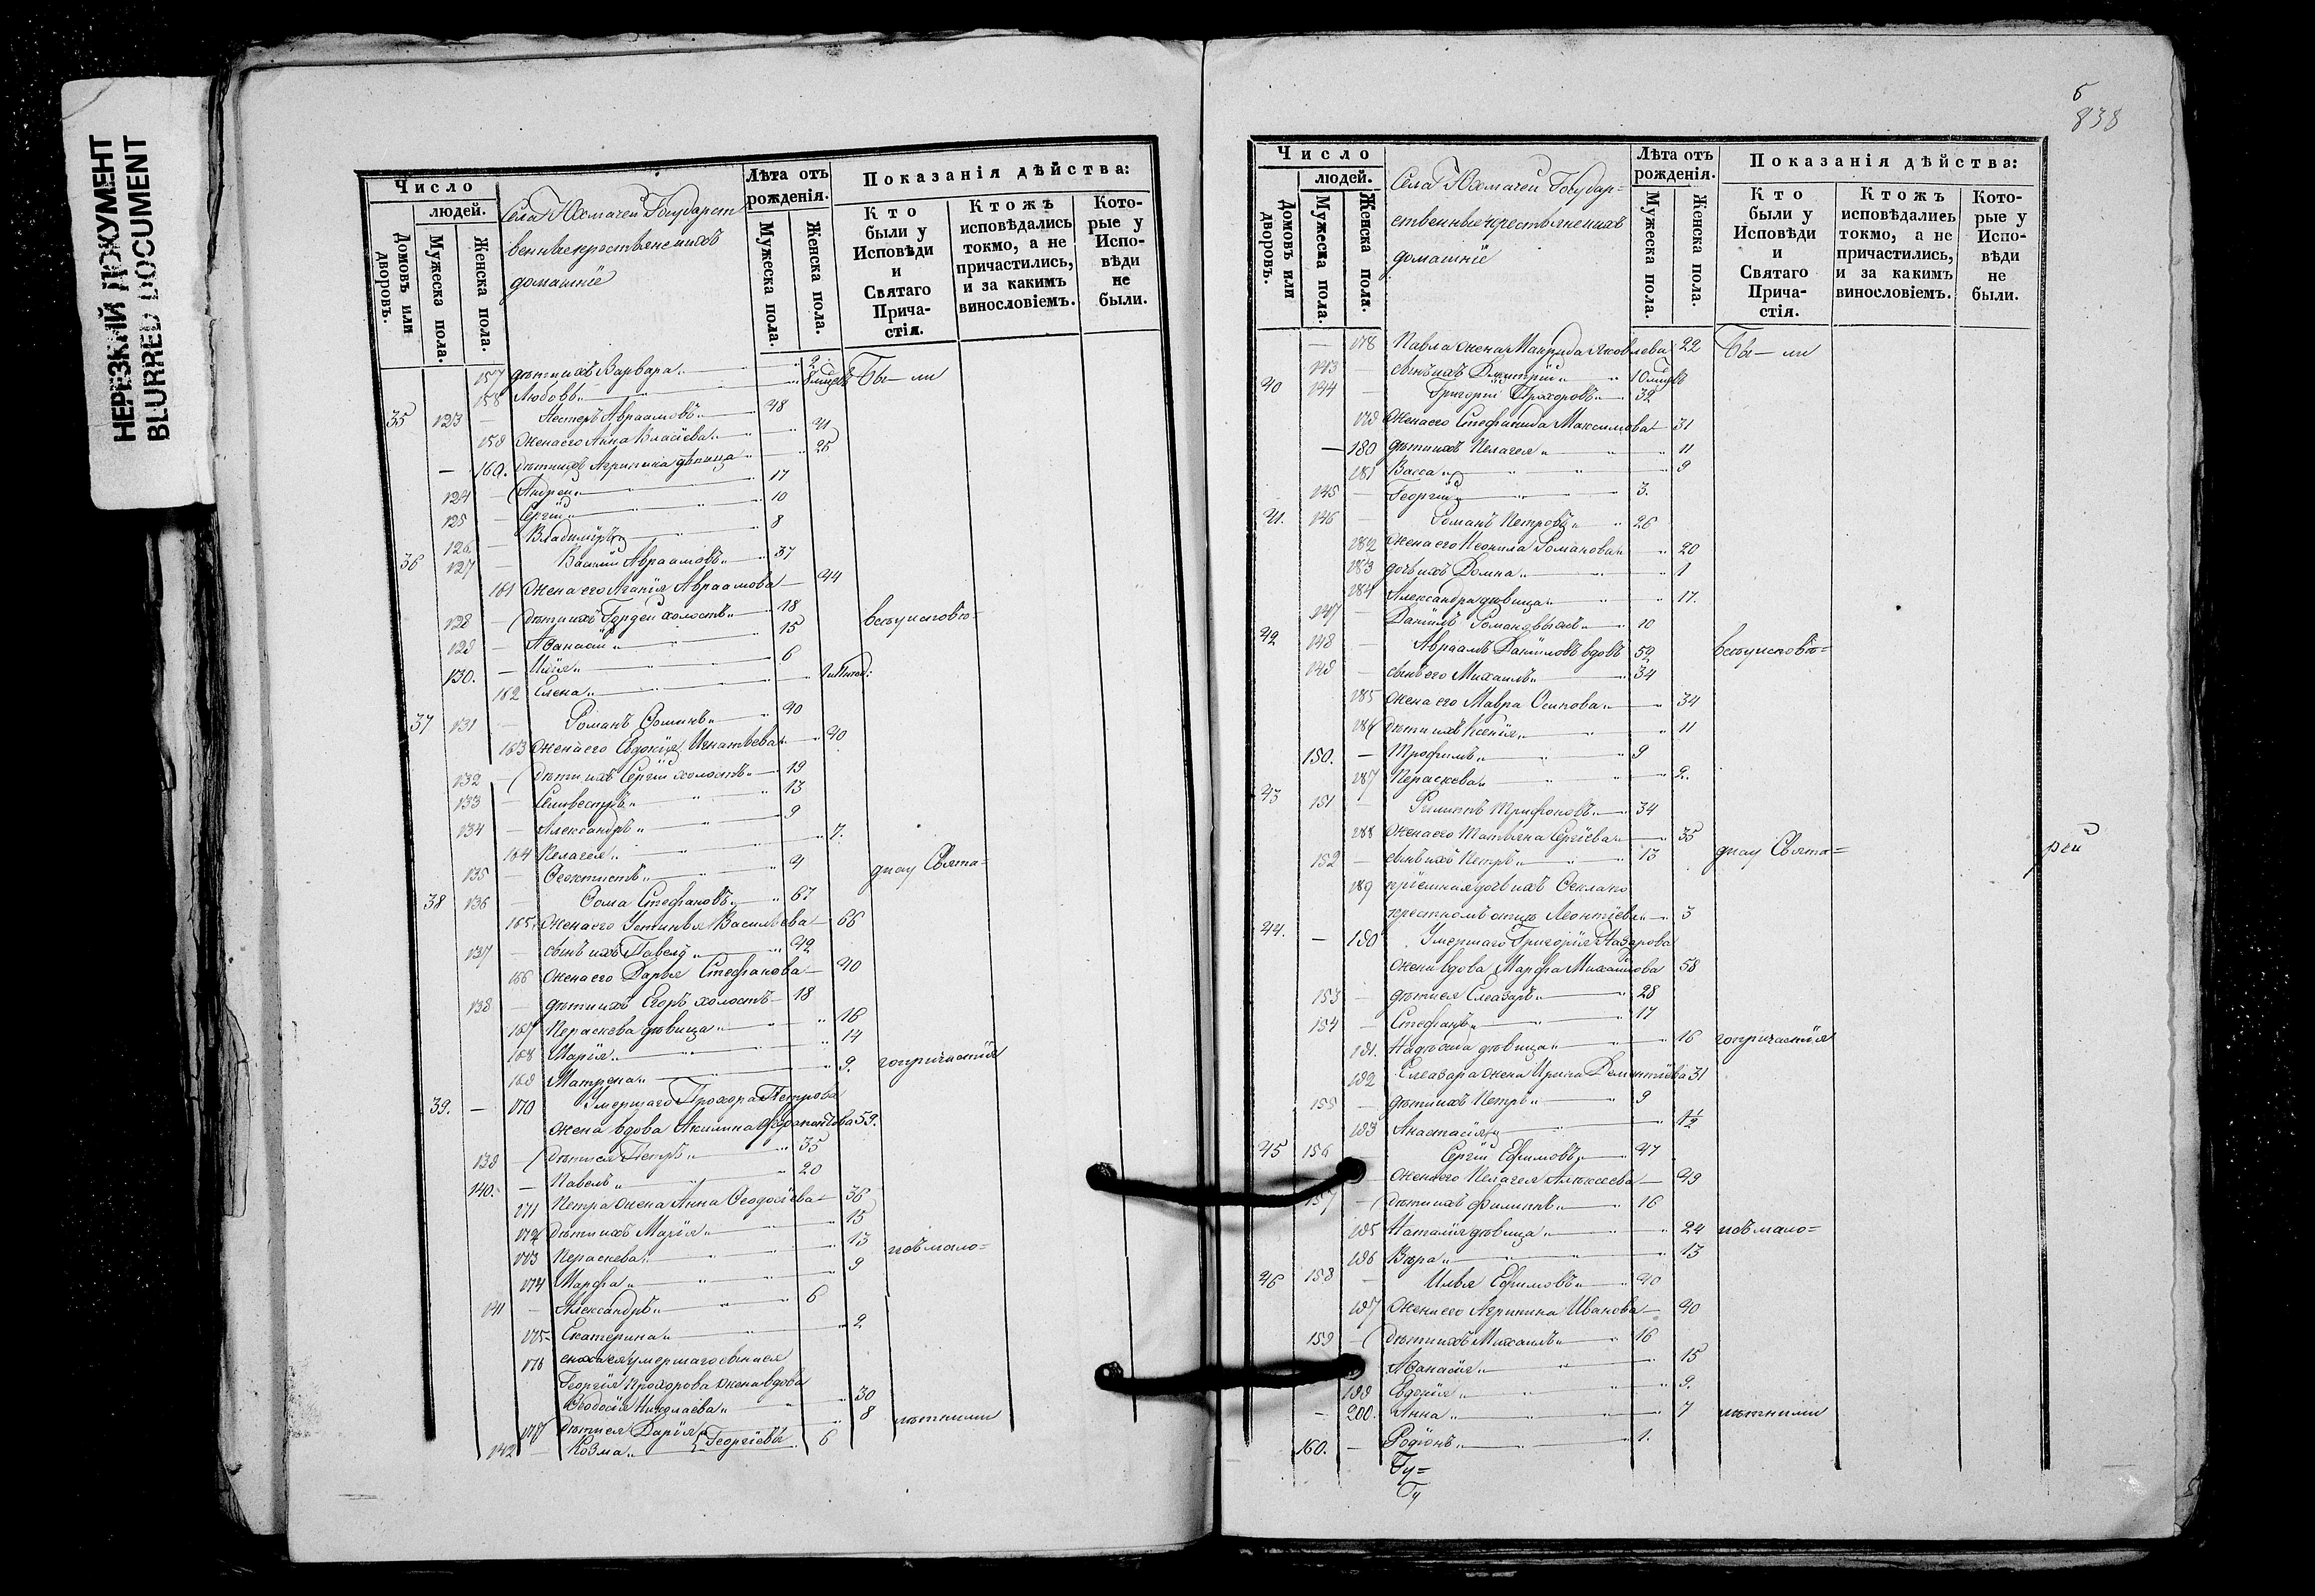 НЕРЕЗКИЙ ДОКУМЕНТ
BLURRED DOCUMENT
Число
людей.
Домовъ или дворовъ.
Мужеска пола.
Женска пола.
Села Юхмачей Государст
венные крестьяне и ихъ
домашніе
Лѣта отъ рожденія.
Мужеска пола.
Женска пола.
Показанія дѣйства:
Кто были у Исповѣди и Святаго Прича-стія.
Ктожъ исповѣдались токмо, а не причастились, и за какимъ винословіемъ.
Кото-рые у Испо-вѣди не были.
157 дѣти ихъ Варвара 2 Бы—ли
158 Любовь
35 123 Нестеръ Авраамовъ 48
159 Жена его Анна Власіева 41
160. дѣти ихъ Агрипина дѣвица 25
124 Андрей 17
125 Сергій 10
126 Владиміръ 8
36 127 Василій Авраамовъ 37
161 Жена его Агапія Авраамова 44
128 Дѣти ихъ Гордей холостъ 18 всѣ у исповѣ=
129 Аѳанасій 15
130. Илія 6
162 Елена
37 131 Романъ Ѳоминъ 40
163 Жена его Евдокія Игнатьева 40
132 Дѣти ихъ Сергій холостъ 19
133 Селивестръ 13
134 Александръ 9
164 Пелагея 7.
135 Ѳеоктистъ 4 ди и у Свята=
38 136 Ѳома Стефановъ 67
165 Жена его Устинья Васильева 66
137 сынъ ихъ Павелъ 42
166 Жена его Дарья Стефанова 40
138 дѣти ихъ Егоръ холостъ 18
167 Параскева дѣвица 16
168 Марія 14
169 Матрена 9. го причастія
39. 170 Умершаго Прохора Петрова
жена вдова Акилина Ферапонтова 59.
139 Дѣти ея Петръ 35
140. Павелъ 20
171 Петра жена Анна Ѳеодосіева 36
172 Дѣти ихъ Марія 15
173 Параскева 13 изъ мало=
174 Марфа 9
141 Александръ 6
175 Екатерина 2
176 сноха ея умершаго сына ея
Георгія Прохорова жена вдова
Ѳеодосія Николаева 30
177 Дѣти ея Дарія 8 лѣтними
142 Козма Георгіевы 6
5
838
Число
людей.
Домовъ или дворовъ.
Мужеска пола.
Женска пола.
Села Юхмачей Государ=
ственные крестьяне и ихъ
домашніе
Лѣта отъ рожденія.
Мужеска пола.
Женска пола.
Показанія дѣйства:
Кто были у Исповѣди и Святаго Прича-стія.
Ктожъ исповѣдались токмо, а не причастились, и за какимъ винословіемъ.
Кото-рые у Испо-вѣди не были.
178 Павла жена Маврида Яковлева 22 Бы—ли
143 сынъ ихъ Димитрій
40 144 Григорій Прохоровъ 32
179 Жена его Стефанида Максимова 31
180 дѣти ихъ Пелагея 11
181 Васса 9
145 Георгій 3.
41. 146 Романъ Петровъ 26
182 Жена его Неонила Романова 20
183 дочь ихъ Домна 1
184 Александра дѣвица 17.
147 Даніилъ 10
42 148 Авраамъ Даниловъ вдовъ 52 всѣ у исповѣ=
149 сынъ его Михаилъ 34
185 жена его Мавра Осипова 34
186 Дѣти ихъ Ксенія 11
150. Трофимъ 9
187 Параскева 2.
43 151 Филиппъ Трифоновъ 34
188 Жена его Татьяна Сергіева 35
152 сынъ ихъ Петръ 13 ди и у Свята= рей
189 пріемная дочь ихъ Ѳекла по
крестномъ отцѣ Леонтіева 3
44. 190 Умершаго Григорія Назарова
жена вдова Марфа Михайлова 58
153 дѣти ея Елеазаръ 28
154 Стефанъ 17
191. Надежда дѣвица 16 го причастія
192 Елеазара жена Ирина Дементіева 31
155 дѣти ихъ Петръ 9
193 Анастасія 1½
45 156 Сергій Ефимовъ 47
Жена его Пелагея Алексеева 49
157 Дѣти ихъ Филиппъ 16
195 Наталія дѣвица 24 изъ мало=
196 Вѣра 13
46 158 Илья Ефимовъ 40
197 Жена его Агрипина Иванова 40
159 Дѣти ихъ Михаилъ 16
Аѳанасія 15
199 Евдокія 9.
200. Анна 7 лѣтними
160. Родіонъ 1.
Гу=
Гу